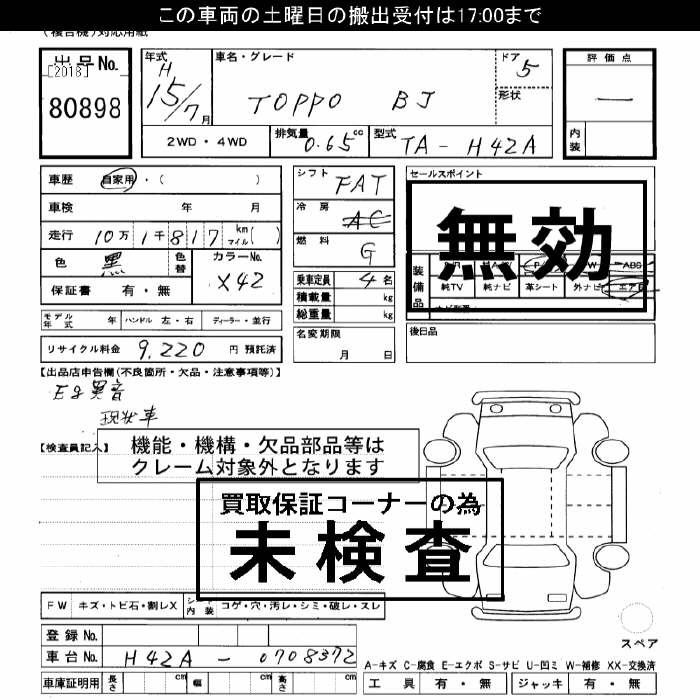 この車両の土曜日の搬出受付は17:00まで
(複合機)対応用紙
出品No.
[2018]
80898
年式
H
15/7月
車名・グレード
TOPPO BJ
ドア
5
形状
評価点
—
内装
2WD・4WD
排気量
0.65cc
型式
TA - H42A
車歴 自家用・( )
車検 年 月
走行 10万1千817 km マイル( )
色 黒 色替 カラーNo. X42
保証書 有・無
シフト
FAT
冷房
AC
燃料
G
乗車定員 4名
積載量 kg
総重量 kg
セールスポイント
無効
装備品
ABS
純TV 純ナビ 革シート 外ナビ エアB
モデル年式 年 ハンドル 左・右 ディーラー・並行
名変期限
月 日
後日品
リサイクル料金 9,220 円 預託済
【出品店申告欄(不良箇所・欠品・注意事項等)】
Eg異音
現状車
【検査員記入】
機能・機構・欠品部品等は
クレーム対象外となります
買取保証コーナーの為
未検査
FW キズ・トビ石・割レX シート内装 コゲ・穴・汚レ・シミ・破レ・スレ
スペア
登録No.
車台No. H42A - 0708372
車庫証明用 長さ cm 幅 cm 高さ cm
A-キズ C-腐食 E-エクボ S-サビ U-凹ミ W-補修 XX-交換済
工具 有・無 ジャッキ 有・無